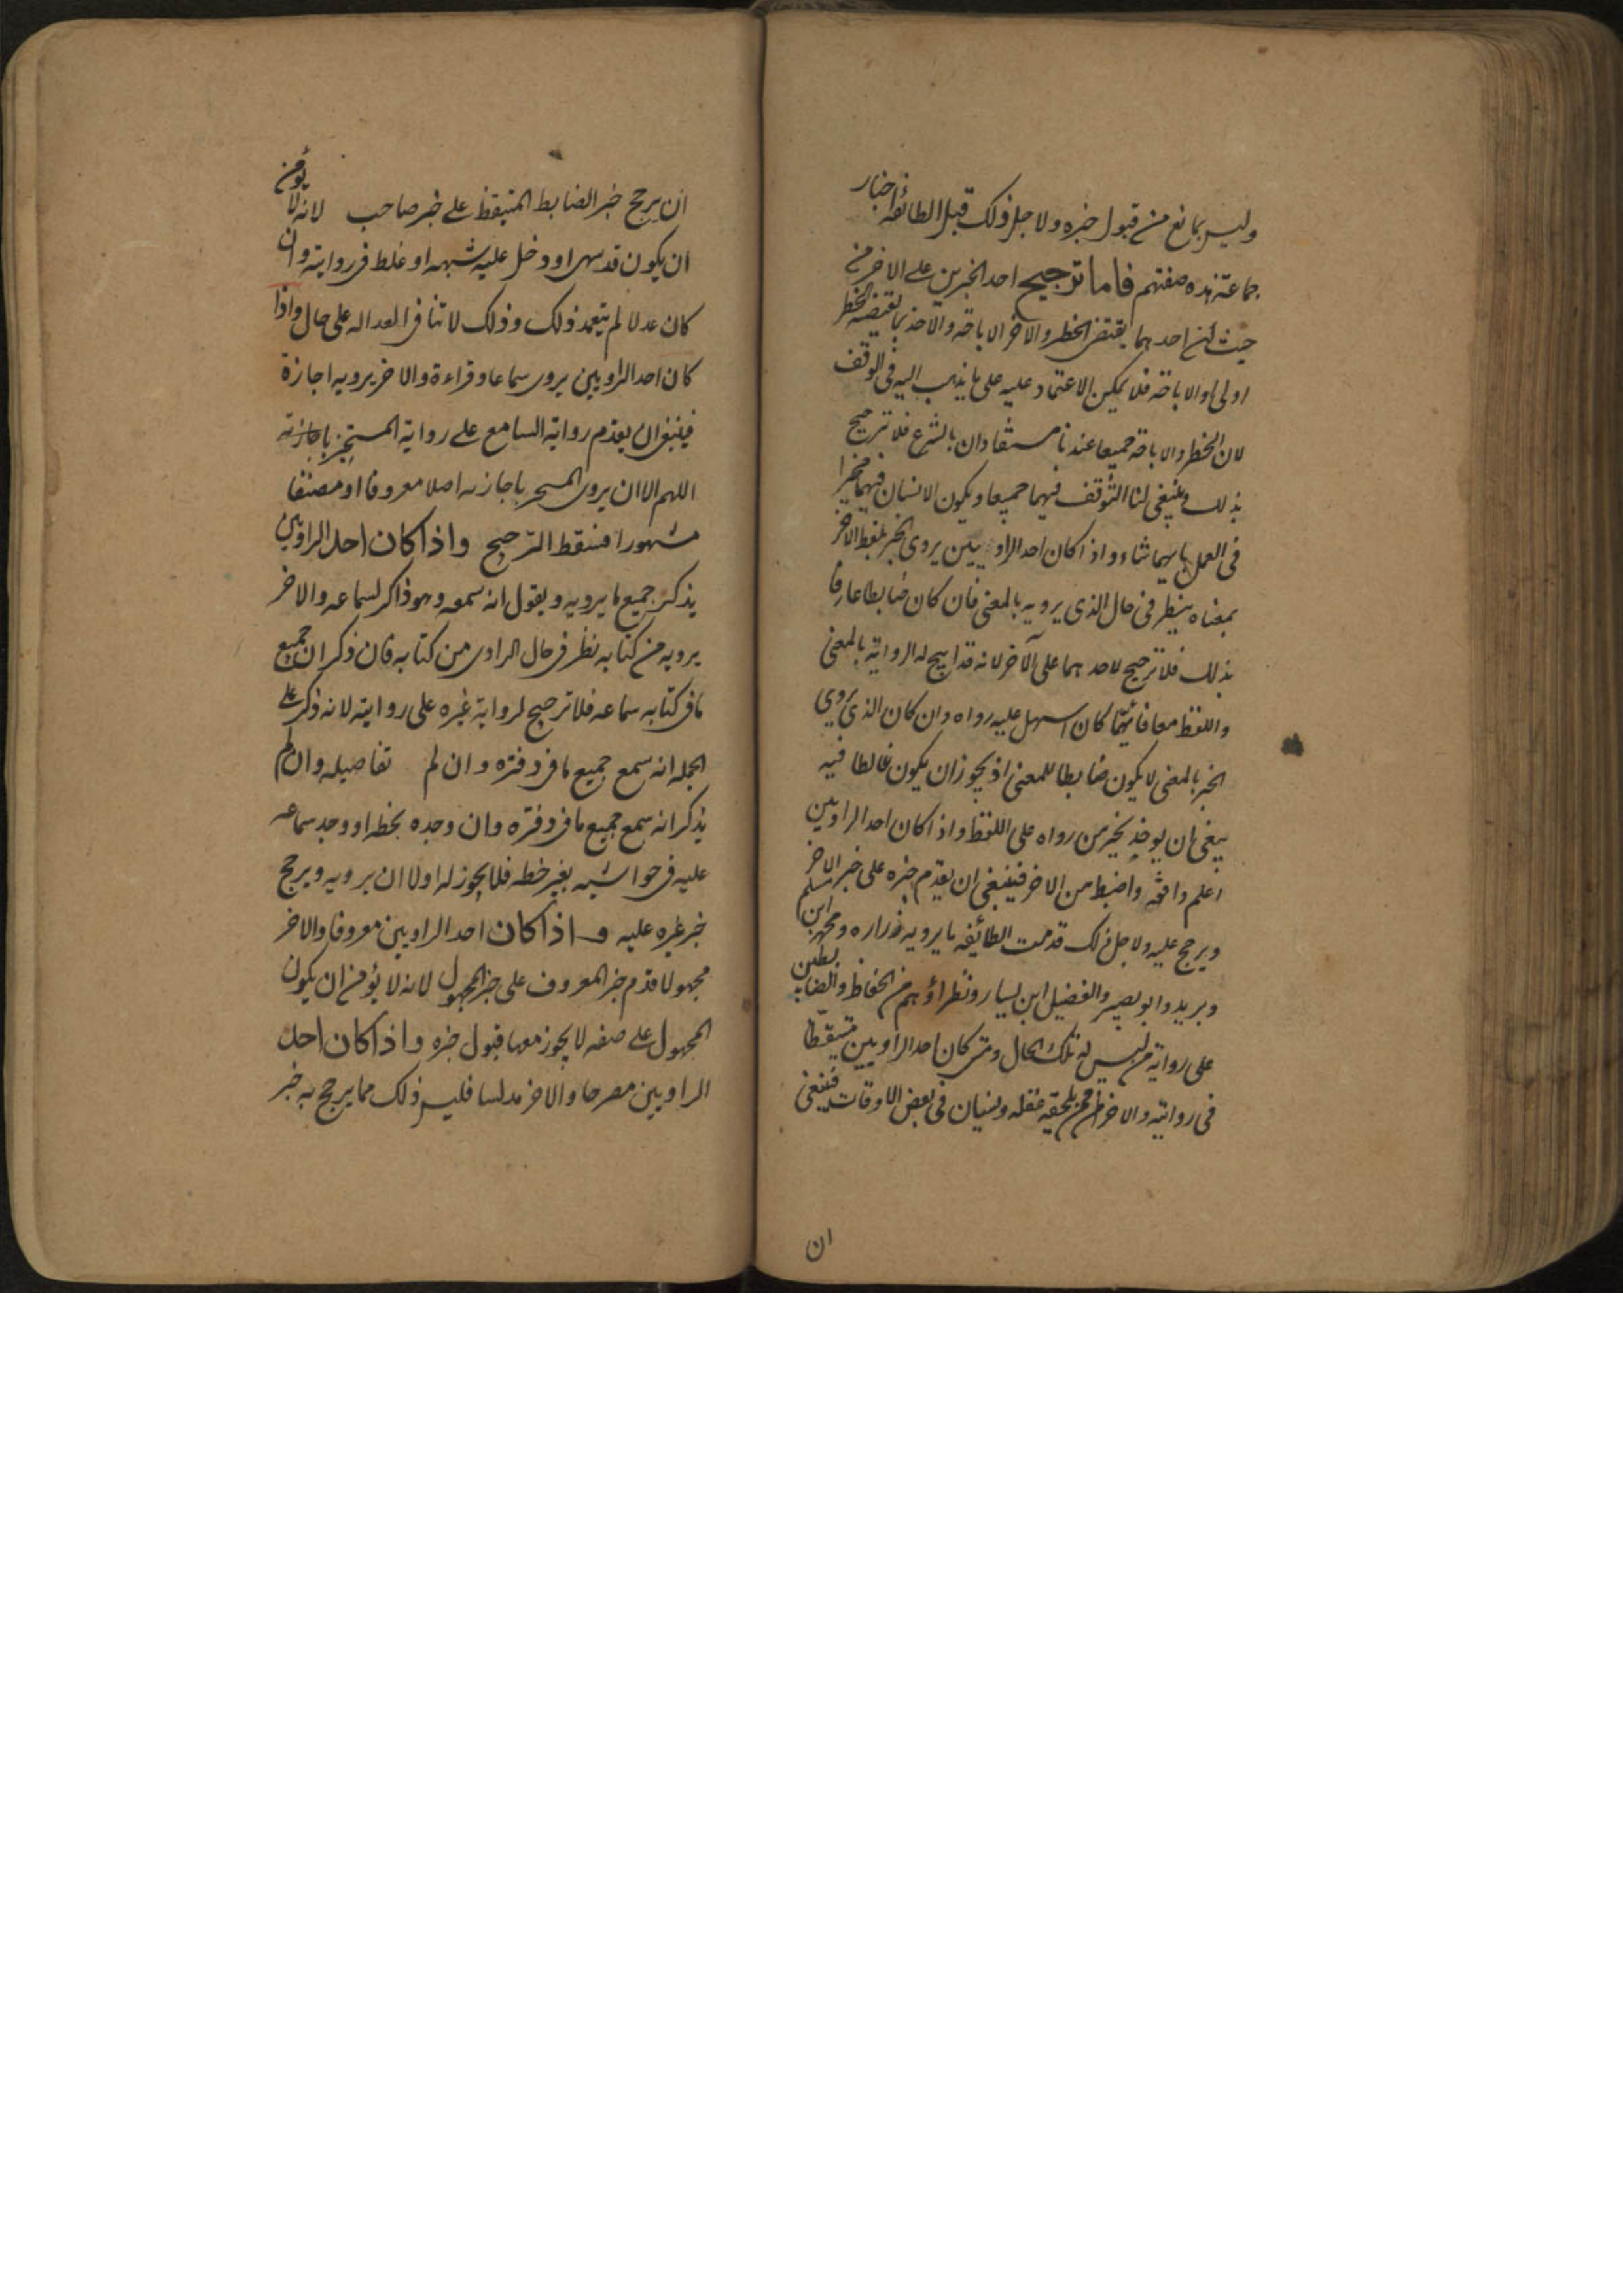 وليس بمانع من قبول خبره ولاجل ذلك قبل الطائفه اخبار
جماعة هذه صفتهم فاما ترجيح احد الخبرين على الاخر من
حيث ان احدهما يقتضى الحظر والاخر الاباحه والاخذ بما يقتضيه الحظر
اولى او الاباحة فلا يمكن الاعتماد عليه على ما يذهب اليه فى الوقف
لان الحظر والاباحه جميعا عندنا مستفادان بالشرع فلا ترجيح
بذلك وينبغى لنا التوقف فيهما جميعا ويكون الانسان فيهما مخيرا
فى العمل بايهما شاء واذا كان احد الراويين يروى الخبر بلفظ الاخر
بمعناه ينظر فى حال الذى يرويه بالمعنى فان كان ضابطا عارفا
بذلك فلا ترجيح لاحدهما على الآخر لانه قد ابيح له الرواية بالمعنى
واللفظ معا فايهما كان اسهل عليه رواه وان كان الذى يروي
الخبر بالمعنى لا يكون ضابطا للمعنى اذ يجوز ان يكون غالطا فيه
ينبغى ان يوخذ بخبر من رواه على اللفظ واذا كان احد الراويين
اعلم وافقه واضبط من الاخر فينبغى ان يقدم خبره على خبر الاخر
ويرجح عليه ولاجل ذلك قدمت الطائفه ما يرويه زراره ومحمد ابن مسلم
وبريد وابو بصير والفضيل ابن يسار ونظراؤهم من الحفاظ والضابطين
على رواية من ليس له تلك الحال ومتى كان احد الراويين متيقظا
فى روايته والاخر ممن يلحقه غفله ونسيان فى بعض الاوقات فينبغى
ان
ان يرجح خبر الضابط المتيقظ على خبر صاحب لانه لا يؤمن
ان يكون قد سهى او دخل عليه شبهه او غلط فى روايته وان
كان عدلا لم يتعمد ذلك وذلك لا تنافى العداله على حال واذا
كان احد الراويين يروى سماعا وقراءة والاخر يرويه اجازة
فينبغى ان يقدم رواية السامع على رواية المستجيز باجازته
اللهم الا ان يروى المسحر باجازته اصلا معروفا او مصنفا
مشهورا فسقط الترجيح واذا كان احد الراويين
يذكر جميع ما يرويه ويقول انه سمعه وهو ذاكر لسماعه والاخر
يرويه من كتابه نظر فى حال الراوى من كتابه فان ذكر ان جميع
ما فى كتابه سماعه فلا ترجيح لرواية غيره على روايته لانه ذكر على
الجمله انه سمع جميع ما فى دفتره وان لم تفاصيله وان لم
يذكر انه سمع جميع ما فى دفتره وان وجده بخطه او وجد سماعه
عليه فى حواشيه بغير خطه فلا يجوز له اولا ان يرويه ويرجح
خبر غيره عليه واذا كان احد الراويين معروفا والاخر
مجهولا قدم خبر المعروف على خبر المجهول لانه لا يؤمن ان يكون
المجهول على صفه لا يجوز معها قبول خبره واذا كان احد
الراويين مصرحا والاخر مدلسا فليس ذلك مما يرجح به خبر